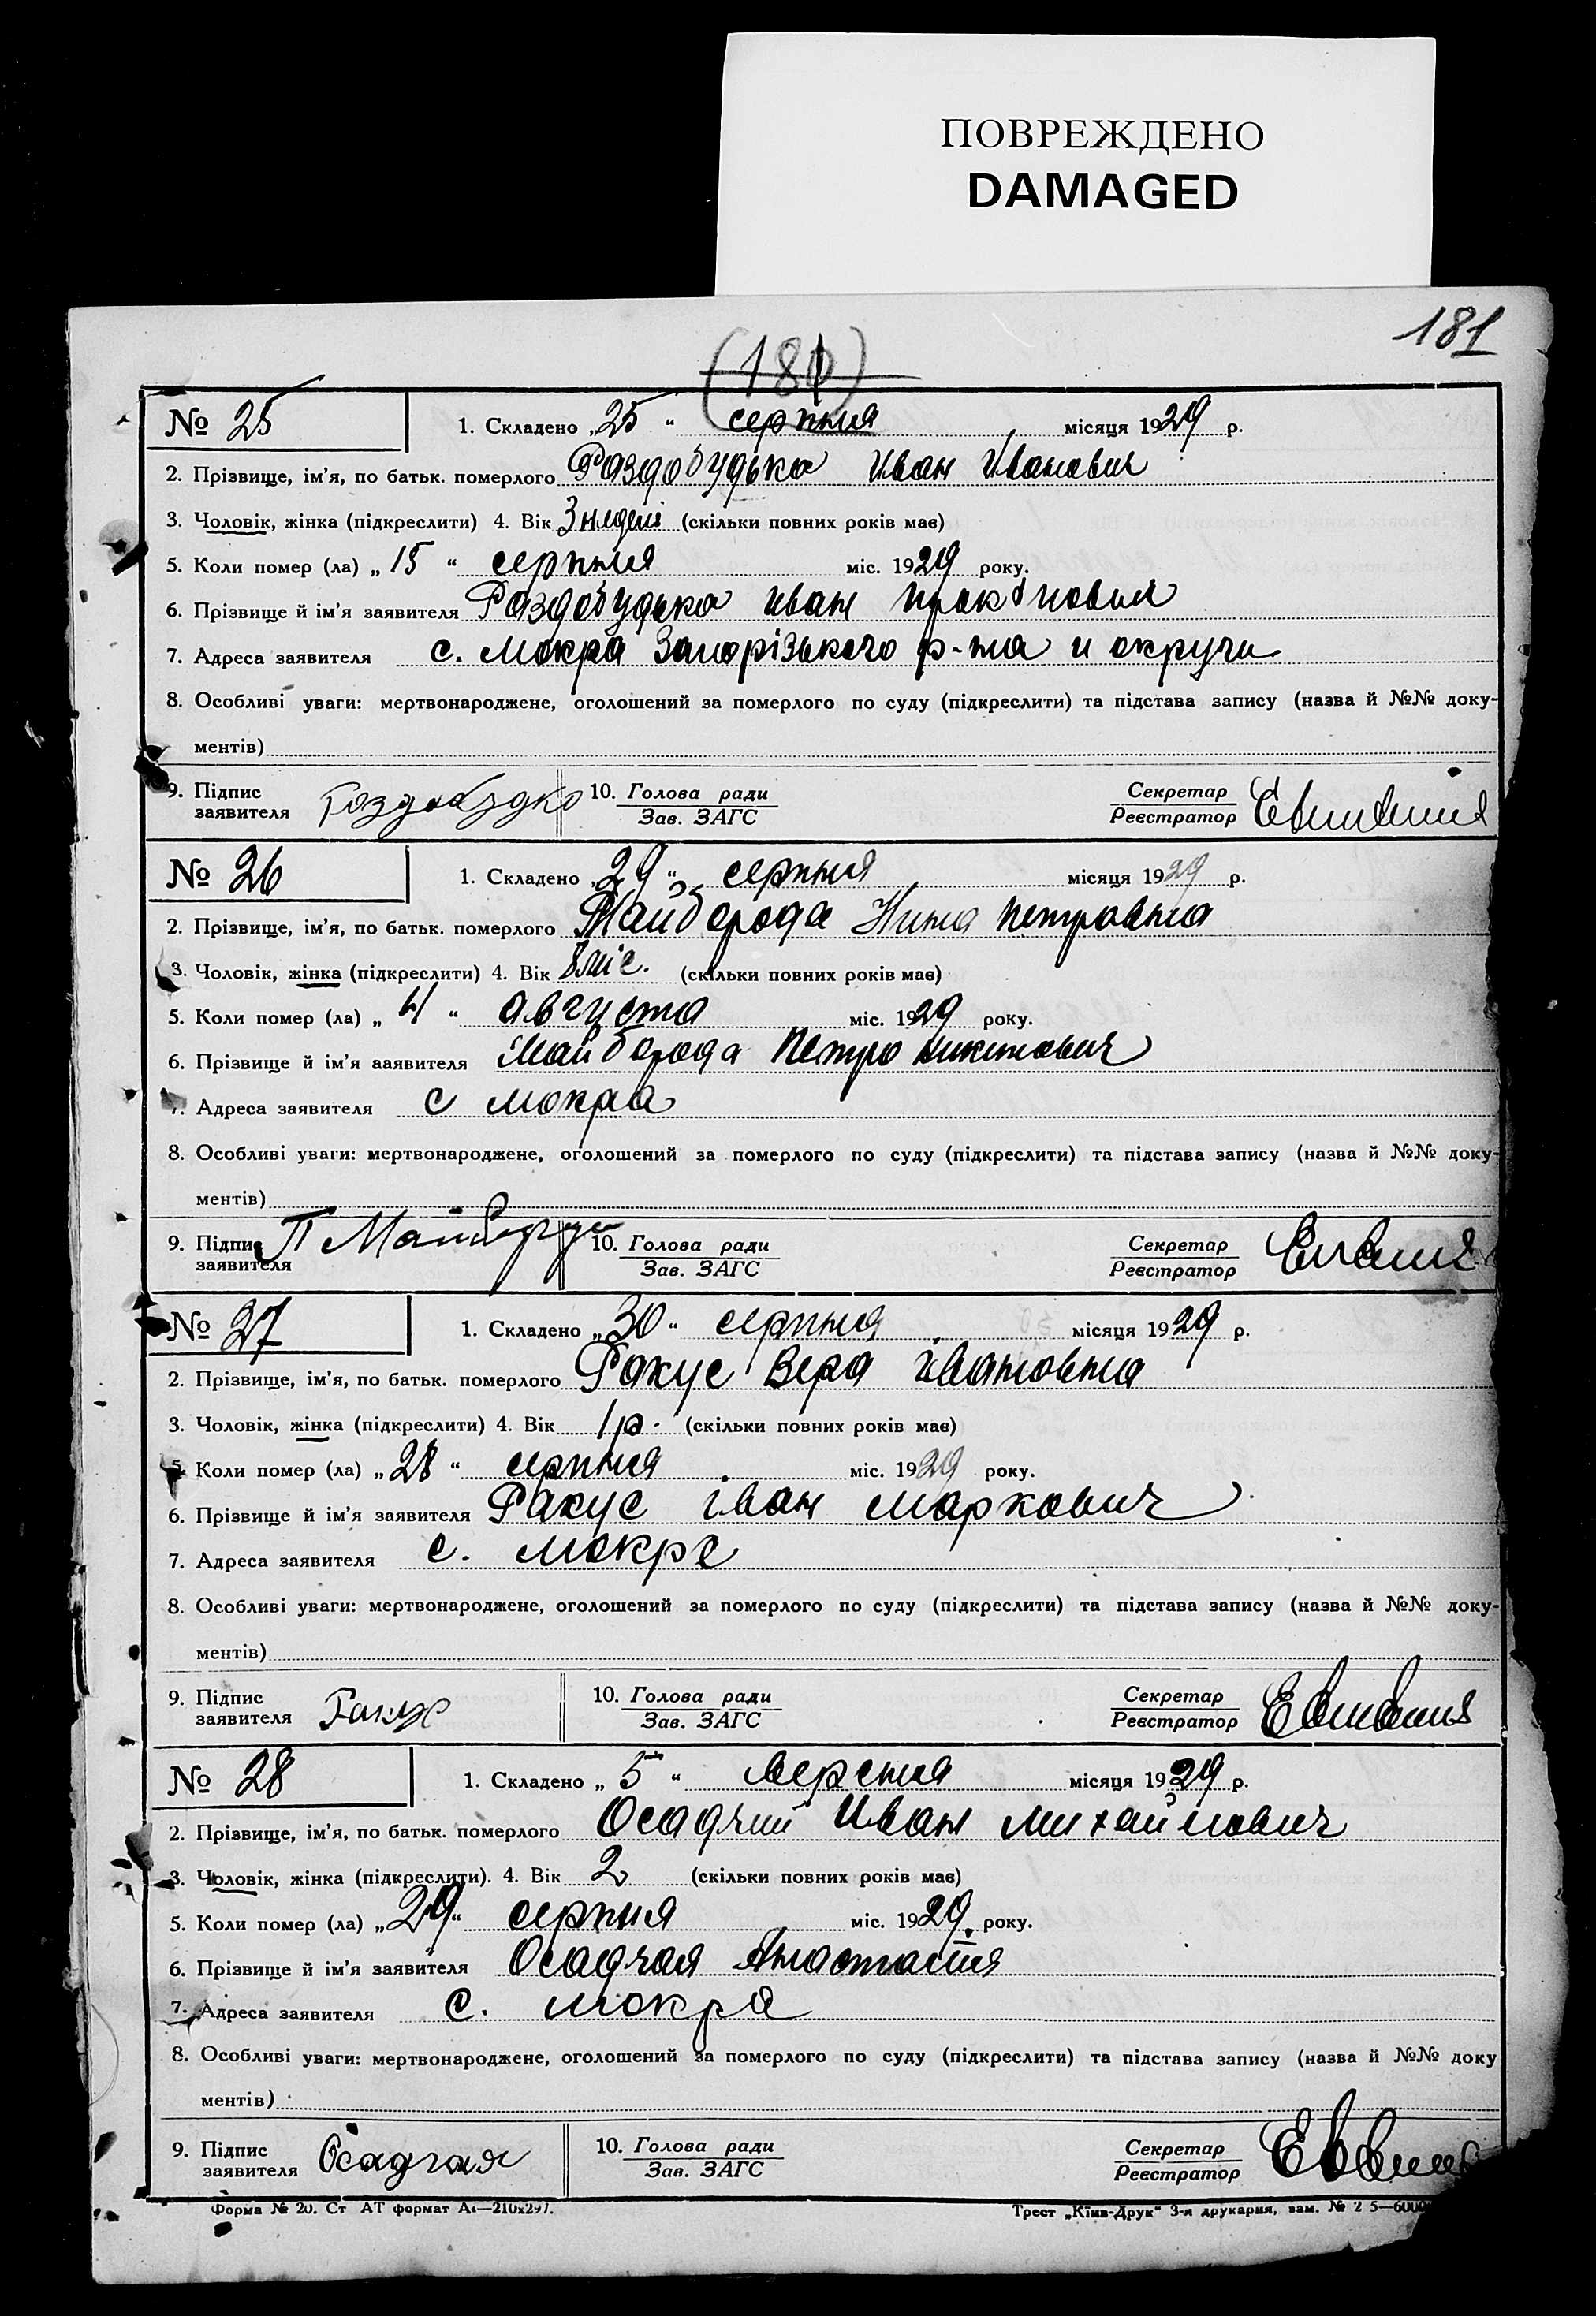 ПОВРЕЖДЕНО
DAMAGED
181
(181)
№ 25 1. Складено „25“ серпня місяця 1929 р.
2. Прізвище, ім'я, по батьк. померлого Раздобудька Иван Иванович
3. Чоловік, жінка (підкреслити) 4. Вік 3 неделі (скільки повних років має)
5. Коли помер (ла) „15“ серпня міс. 1929 року.
6. Прізвище й ім'я заявителя Раздобудька Иван
7. Адреса заявителя с. Мокра Запорізького р-на и округи
8. Особливі уваги: мертвонароджене, оголошений за померлого по суду (підкреслити) та підстава запису (назва й №№ доку-
ментів)
9. Підпис заявителя Роздобудко 10. Голова ради Секретар
Зав. ЗАГС Реєстратор
№ 26 1. Складено „29“ серпня місяця 1929 р.
2. Прізвище, ім'я, по батьк. померлого Майборода Нина Петровна
3. Чоловік, жінка (підкреслити) 4. Вік 8 міс. (скільки повних років має)
5. Коли помер (ла) „ “ августа міс. 1929 року.
6. Прізвище й ім'я аявителя Майборода Петро Никитович
7. Адреса заявителя с Мокра
8. Особливі уваги: мертвонароджене, оголошений за померлого по суду (підкреслити) та підстава запису (назва й №№ доку-
ментів)
9. Підпис заявителя П Майборода 10. Голова ради Секретар
Зав. ЗАГС Реєстратор
№ 27 1. Складено „30“ серпня місяця 1929 р.
2. Прізвище, ім'я, по батьк. померлого Ракус Вера Ивановна
3. Чоловік, жінка (підкреслити) 4. Вік 1 р. (скільки повних років має)
5. Коли помер (ла) „28“ серпня міс. 1929 року.
6. Прізвище й ім'я заявителя Ракус Іван Маркович
7. Адреса заявителя с. Мокре
8. Особливі уваги: мертвонароджене, оголошений за померлого по суду (підкреслити) та підстава запису (назва й №№ доку-
ментів)
9. Підпис заявителя Ракус 10. Голова ради Секретар
Зав. ЗАГС Реєстратор
№ 28 1. Складено „5“ версня місяця 1929 р.
2. Прізвище, ім'я, по батьк. померлого Осадчий Иван Михайлович
3. Чоловік, жінка (підкреслити). 4. Вік 2 (скільки повних років має)
5. Коли помер (ла) „29“ серпня міс. 1929 року.
6. Прізвище й ім'я заявителя Осадчая Анастасия
7. Адреса заявителя с. Мокра
8. Особливі уваги: мертвонароджене, оголошений за померлого по суду (підкреслити) та підстава запису (назва й №№ доку
ментів)
9. Підпис заявителя Осадчая 10. Голова ради Секретар
Зав. ЗАГС Реєстратор
Форма № 20. Ст АТ формат А4—210х297. Трест „Київ-Друк“ 3-я друкарня, зам. №